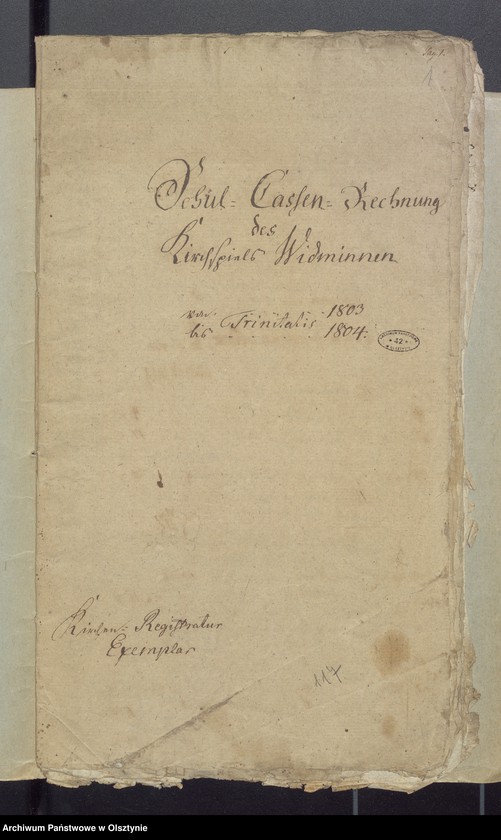 Pag. 1.
1
Schul-Cassen-Rechnung
des
Kirchspiels Widminnen
von
bis Trinitatis 1803
1804.
42
Kirchen-Registratur
Exemplar
117
Archiwum Państwowe w Olsztynie